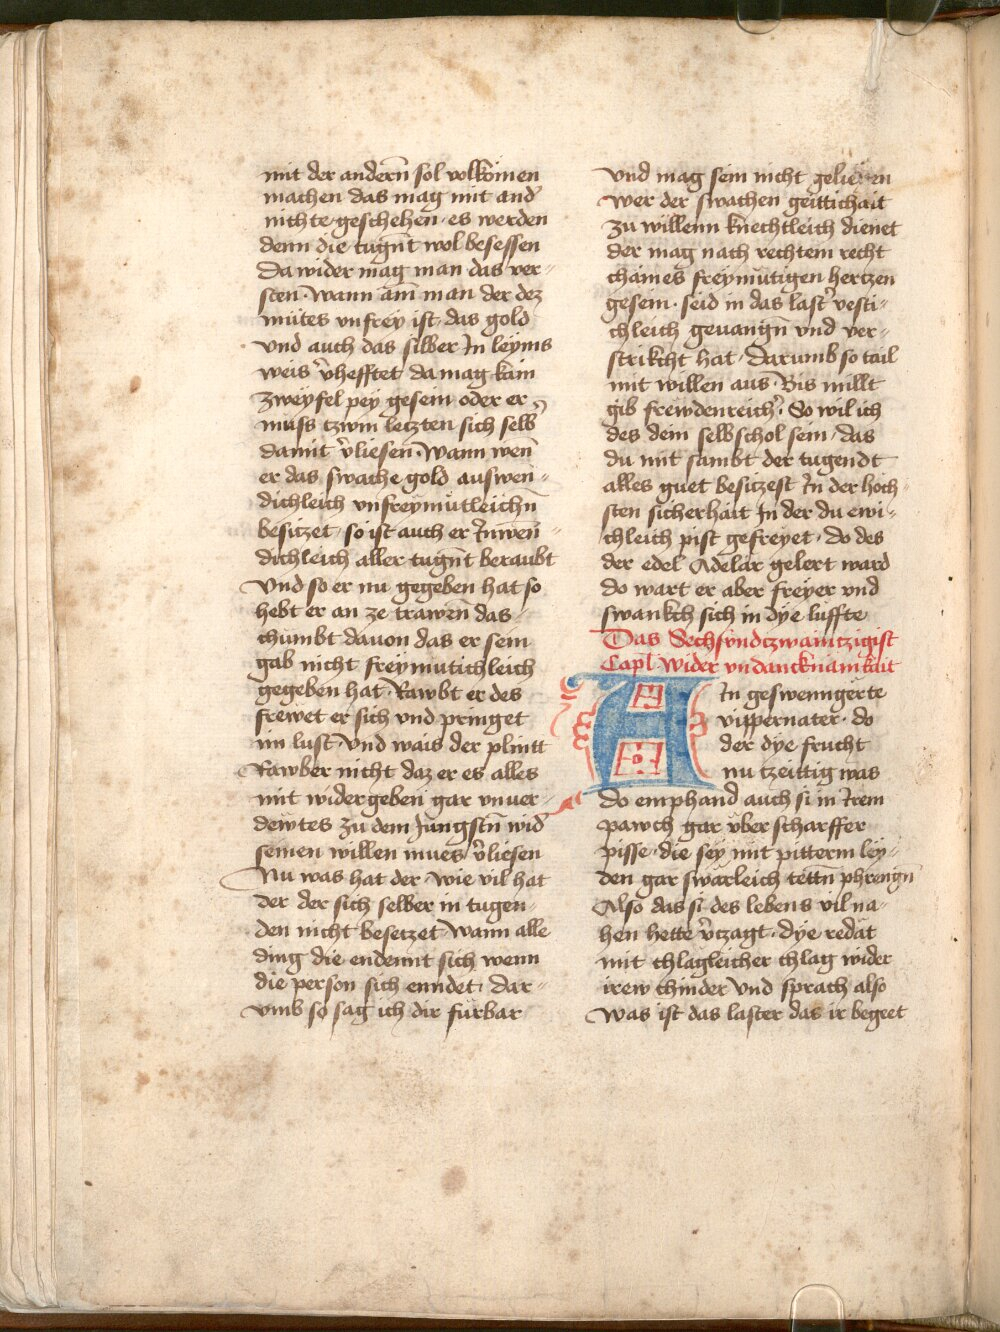 mit der andern̄ sol volkömen
machen das mag mit and͛
nichte geschehen · es werden
denn die tugn̄t wol besessen
Da wider mag man das ver-
sten · Wann am̄ man der dez
mütes vnfrey ist das gold
vnd auch das silber In leyms
weis v͛hefftet da mag kain
zweyfel pey gesein oder er
muss tzwm letzten sich selb͛
damit v͛liesen̄ · Wann wen̄
er das swache gold auswen-
dichleich vnfreymutleichn̄
besitzet / so ist auch er Inwen̄-
dichleich aller tugn̄t beraubt
Vnd so er nu gegeben hat so
hebt er an ze trawen̄ das
chümbt dauon das er sein
gab nicht freymutichleich
gegeben hat · Rawbt er des
frewet er sich vnd pringet
im lust · Vnd wais der plintt
Rawber nicht daz er es alles
mit widergeben gar vnuer-
dewtes zu dem Jungstn̄ wid͛
seinen willen mues v͛liesen
Nu was hat der · Wie vil hat
Der der sich selber in tugen-
den nicht besetzet Wann alle
ding die endennt sich wenn
die person sich enndet · dar-
vmb so sag ich dir fürbar
Vnd mag sein nicht geliegen
Wer der swachen geittichait
zu willenn knechtleich dienet
der mag nach rechtem recht
chaines freymütigen hertzen
gesein · seid in das last͛ vesti-
chleich geuangn̄ vnd ver-
strikcht hat · Darumb so tail
mit willen aus · Bis millt
gib frewdenreich͛ · So wil ich
des dein selbschol sein / das
du mit sambt der tugendt
alles guet besitzest In der hoch-
sten sicherhait In der du ewi-
chleich pist gefreyet · do des
der edel Adelar gelert ward
do wart er aber freyer vnd
swankch sich in dye luffte
Das Sechsvndtzwaintzigist
Capl̄ Wider vndancknämkait
A In geswenngerte
vippernater · do
der dye frucht
nu tzeittig was
do emphand auch si in Irem
pawch gar vber scharffer
pisse · die sey mit pitterm ley-
den gar swärleich tettn̄ phrengn̄
Also das si des lebens vil na-
hen hette v͛tzagt · dye redat
mit chlagleicher chlag wider
irew chinder Vnd sprach also
Was ist das laster das ir begeet